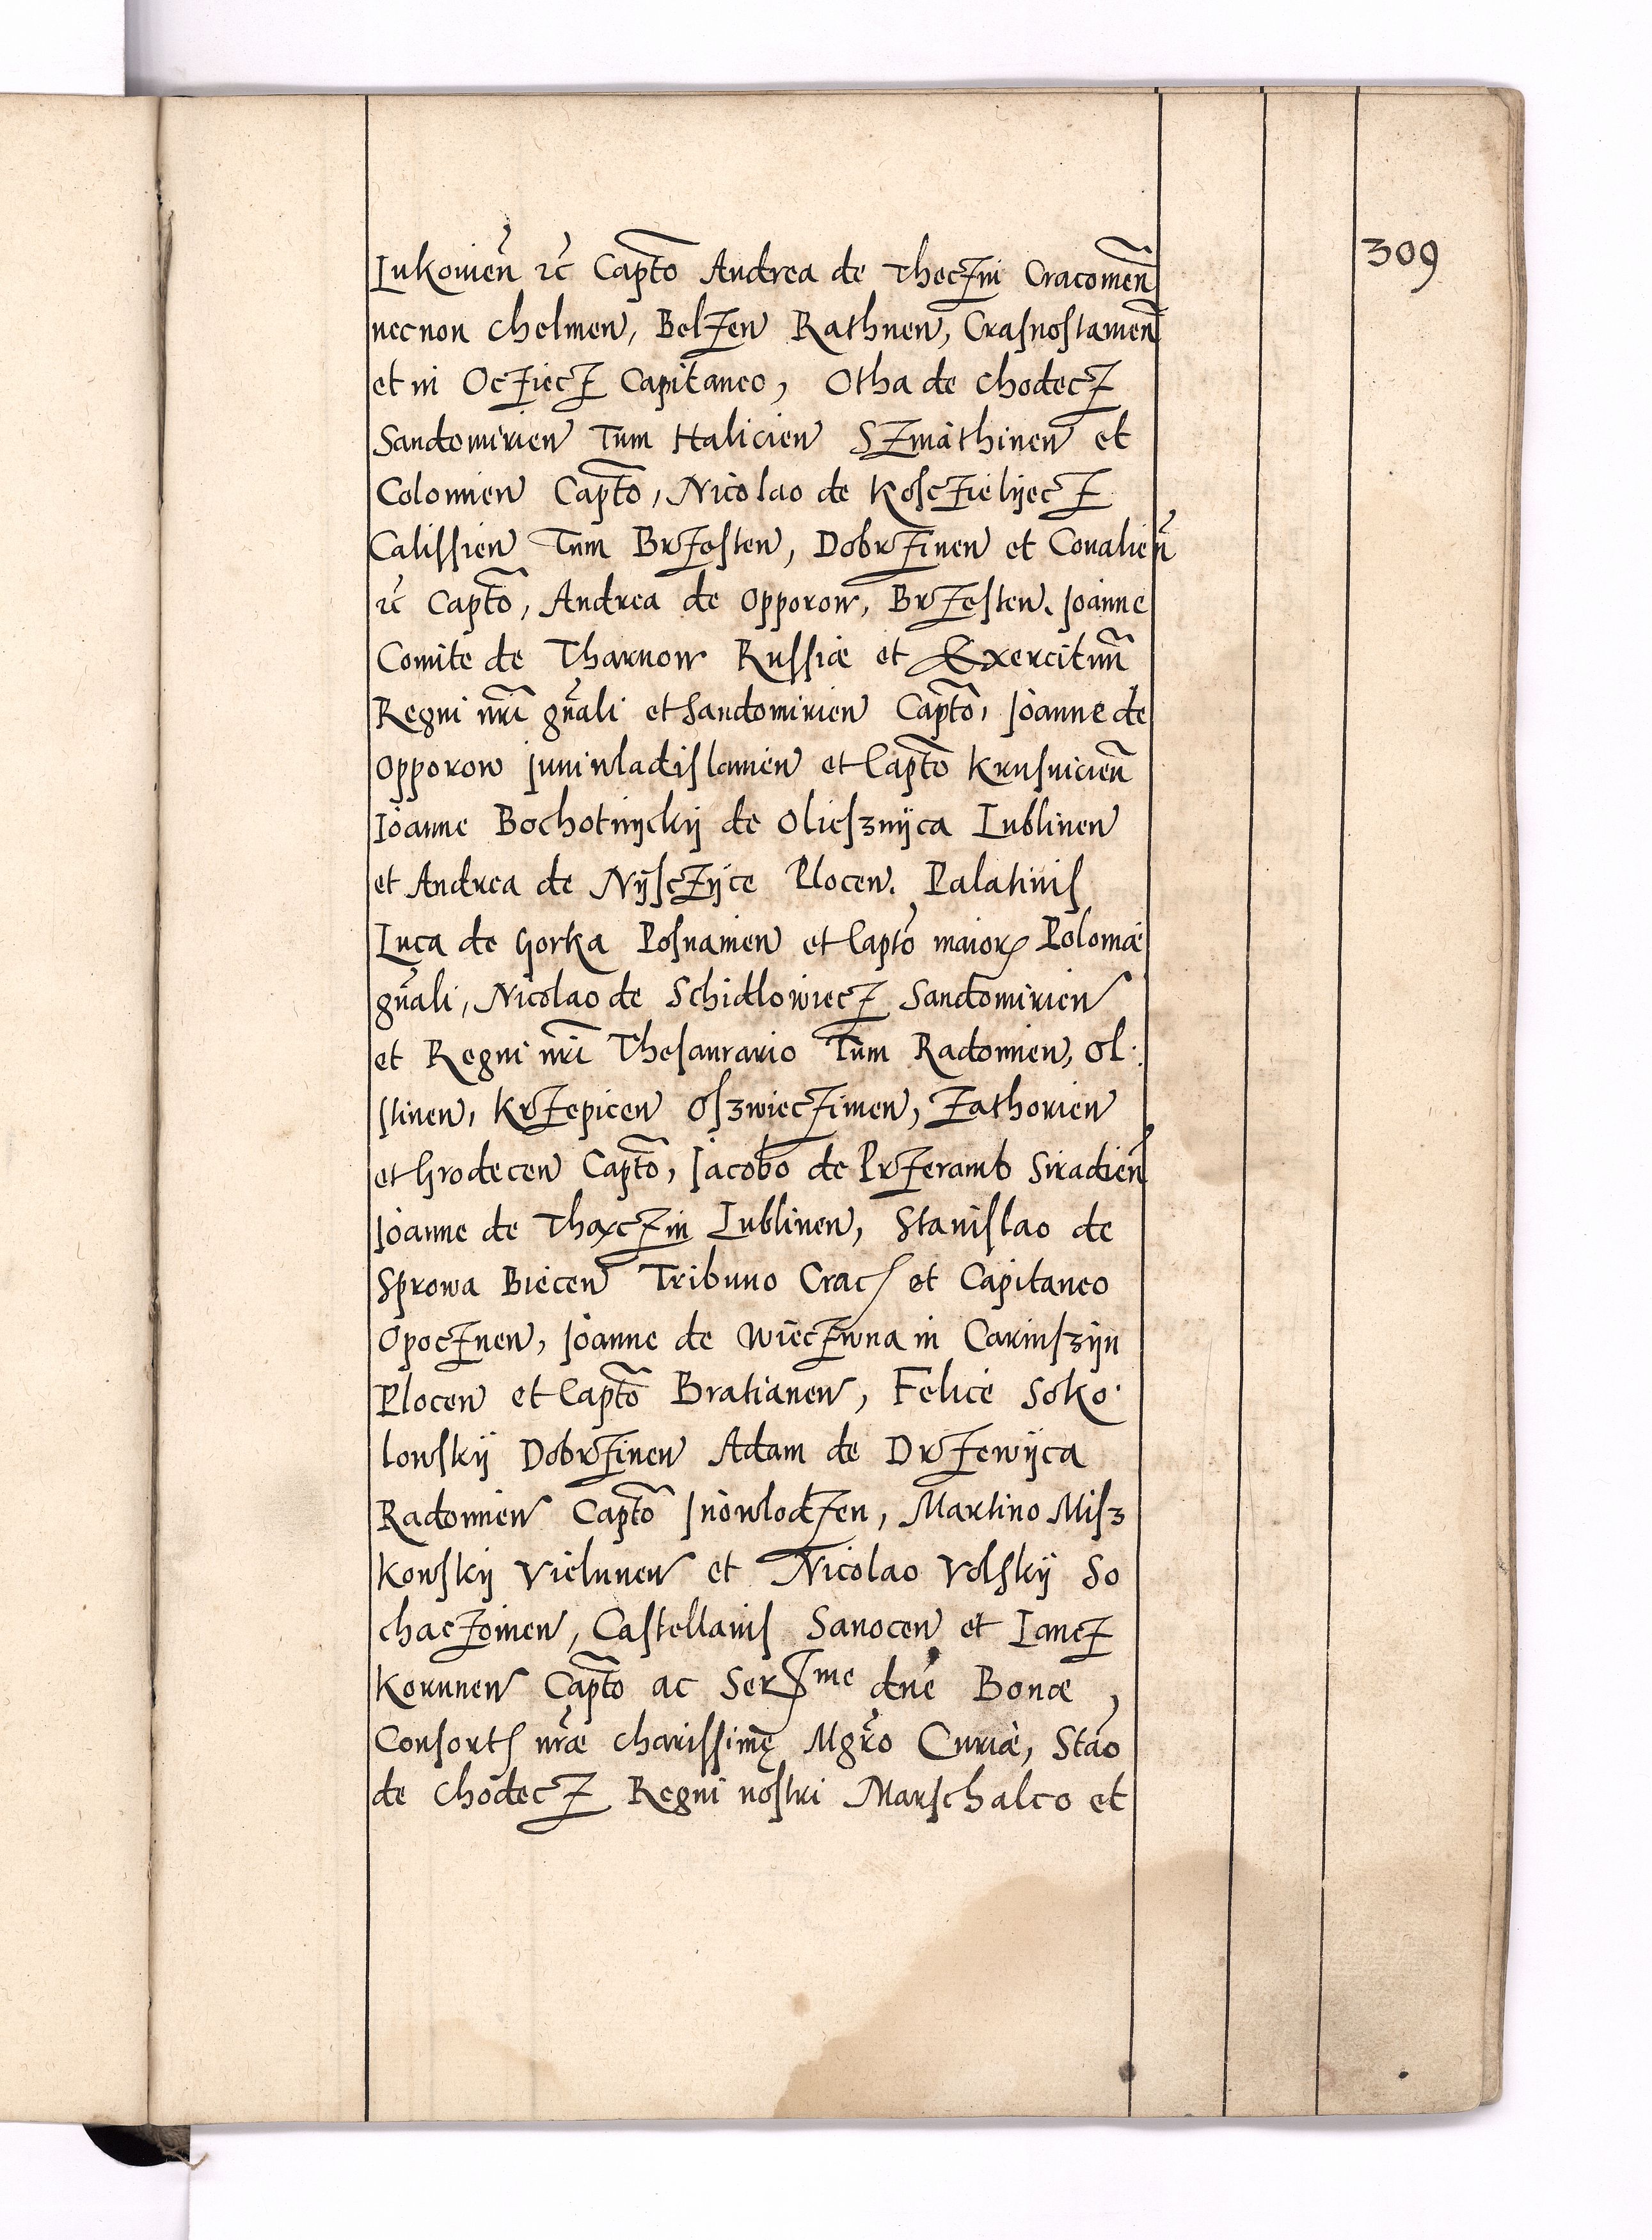 309
Lukouien̄ ꝛc̄ Cap̄to Andrea de Theczin Cracouien̄
necnon Chelmen, Belzen Rathnen, Crasnostauien̄
et in Ocziecz Capitaneo, Otha de Chodecz
Sandomirien Tum Halicien Szniathinen et
Colomien Cap̄to, Nicolao de Kosczielyecz
Calissien Tum Brzesten, Dobrzinen et Coualien̄
ꝛc̄ Cap̄to, Andrea de Opporow, Brzesten. Joanne
Comite de Tharnow Russiæ et Exercituu̅
Regni nr̄i gn̄ali et Sandomirien Cap̄to, Joanne de
Opporow Juniuladislauien et Cap̄to Krusuicien̄
Joanne Bochotnyckÿ de Oliesznÿca Lublinen
et Andrea de Nÿsczÿce Plocen. Palatinis
Luca de Gorka Posnanien et Capto maioꝝ Poloniæ
gn̄ali, Nicolao de Schidlowiecz Sandomirien
et Regni nr̄i Thesaurario Tum Radomien, Ol:
stinen, Krzepicen Oszwieczimen, Zathorien
et Grodecen Cap̄to, Jacobo de Przeramb Siradien̄
Joanne de Thaxczin Lublinen, Stanislao de
Sprowa Biecen Tribuno Crac̄ et Capitaneo
Opocznen, Joanne de Wieczwna in Carinszÿn
Plocen et Cap̄to Bratianen, Felice Soko
lowskÿ Dobrzinen Adam de Drzewÿca
Radomien Cap̄to Jnowlodzen, Martino Misz
kowskÿ Vielunen et Nicolao Volskÿ So
chaczouien, Castellanis Sanocen et Lancz
Korunen Cap̄to ac Serᵐᵉ dn̄e Bonæ,
Consortꝭ nr̄æ charissimę Mgr̄o Curiæ, Stāo
de Chodecz Regni nostri Marschalco et